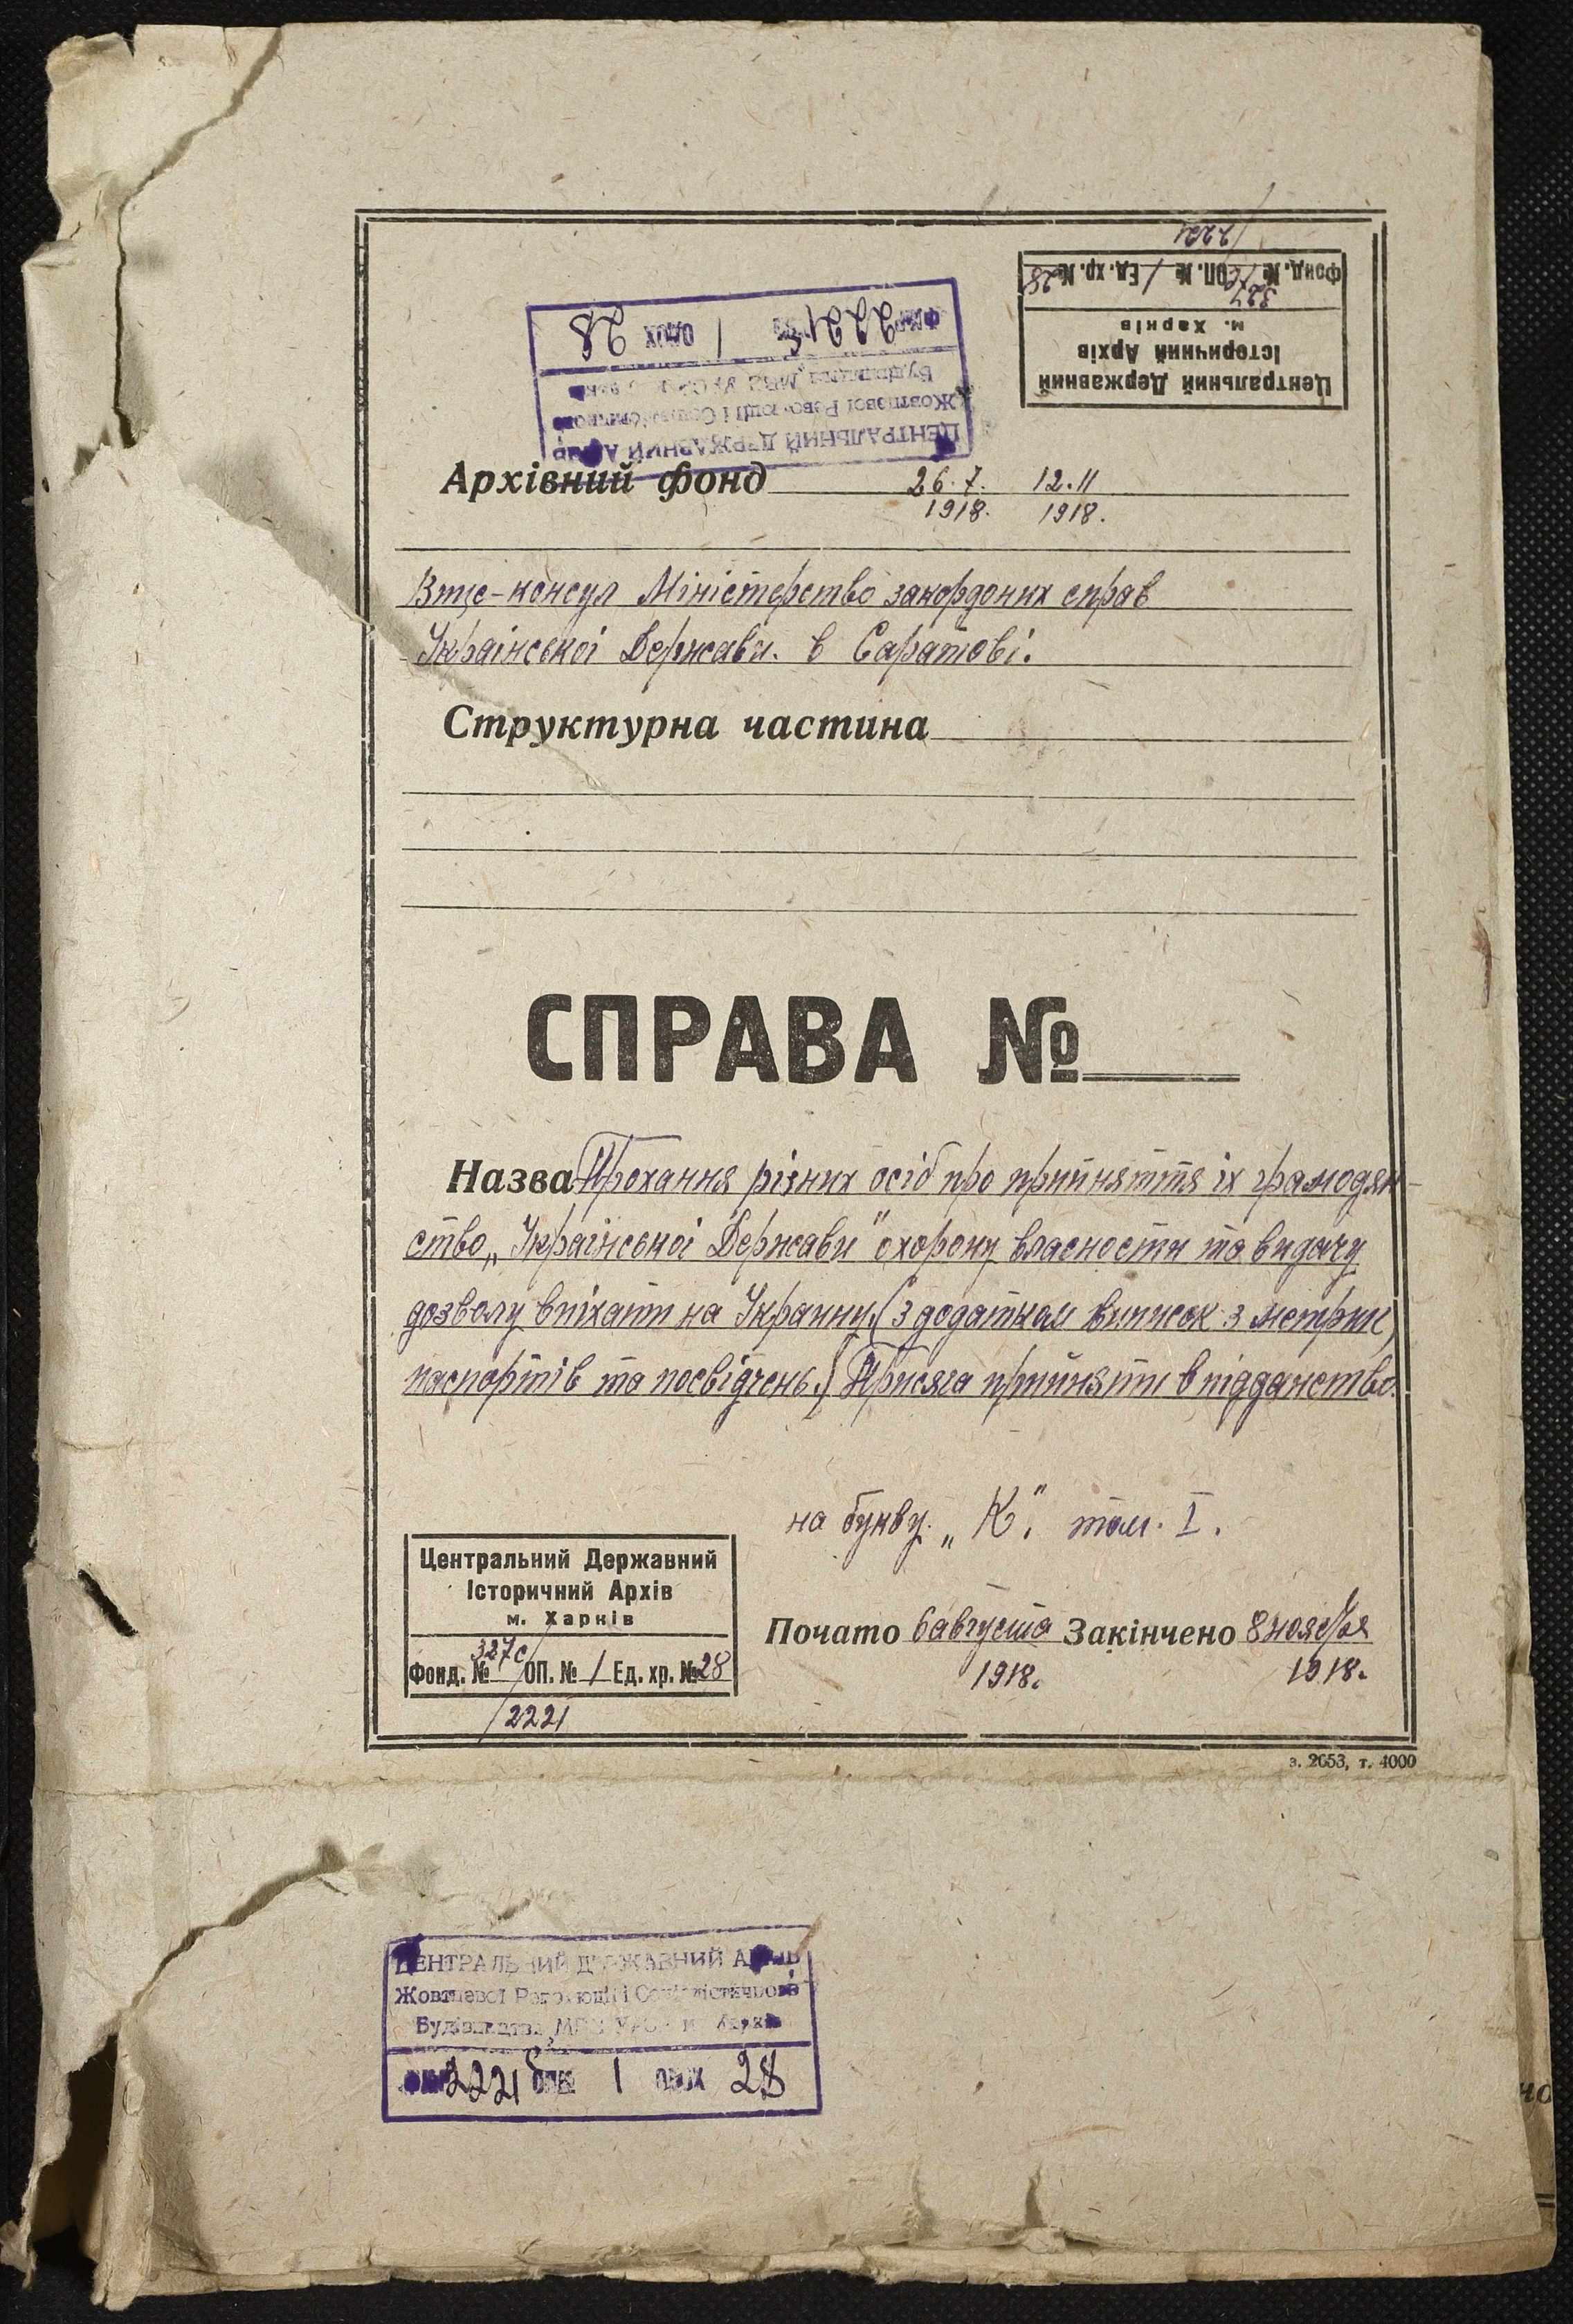 /2221
Фонд. № 327с/ ОП. № 1 Ед. хр. № 28
м. Харків
Історичний Архів
Центральний Державний
2221 1 28
Жовтневої Революції і
ЦЕНТРАЛЬНИЙ ДЕРЖАВНИЙ АРХІВ
Архівний фонд 26.7. 12.11
1918. 1918.
Вице-консул Міністерство закордоних справ
Української Держави. в Саратові.
Структурна частина
СПРАВА №
Назва Прохання різних осіб про прийняття їх грамодян-
ство „Української Держави" охорону власности та видачу
дозволу виїхати на Украину. (з додатком виписок з метрик,
паспортів та посвідчень.) Присяга прийняти в підданство.
на букву. „К". том. I.
Центральний Державний
Історичний Архів
м. Харків
Фонд. № 327с/ ОП. № 1 Ед. хр. № 28
/2221
Почато 6 августа Закінчено 8 ноября
1918. 1918.
з. 2653, т. 4000
ЦЕНТРАЛЬНИЙ ДЕРЖАВНИЙ АРХІВ
Жовтневої Революції і Соціалістичного
Будівництва МВС УРСР м. Харків
2221 1 28
но